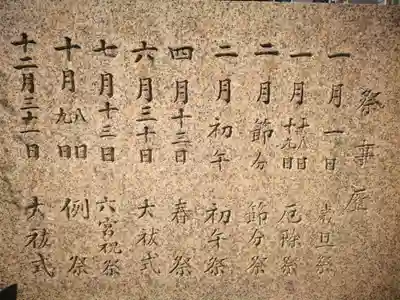 祭事暦
一月一日 歳旦祭
一月十八日十九日 厄除祭
二月節分 節分祭
二月初午 初午祭
四月十三日 春祭
六月三十日 大祓式
七月十三日 六宮祝祭
十月八日九日 例祭
十二月三十一日 大祓式